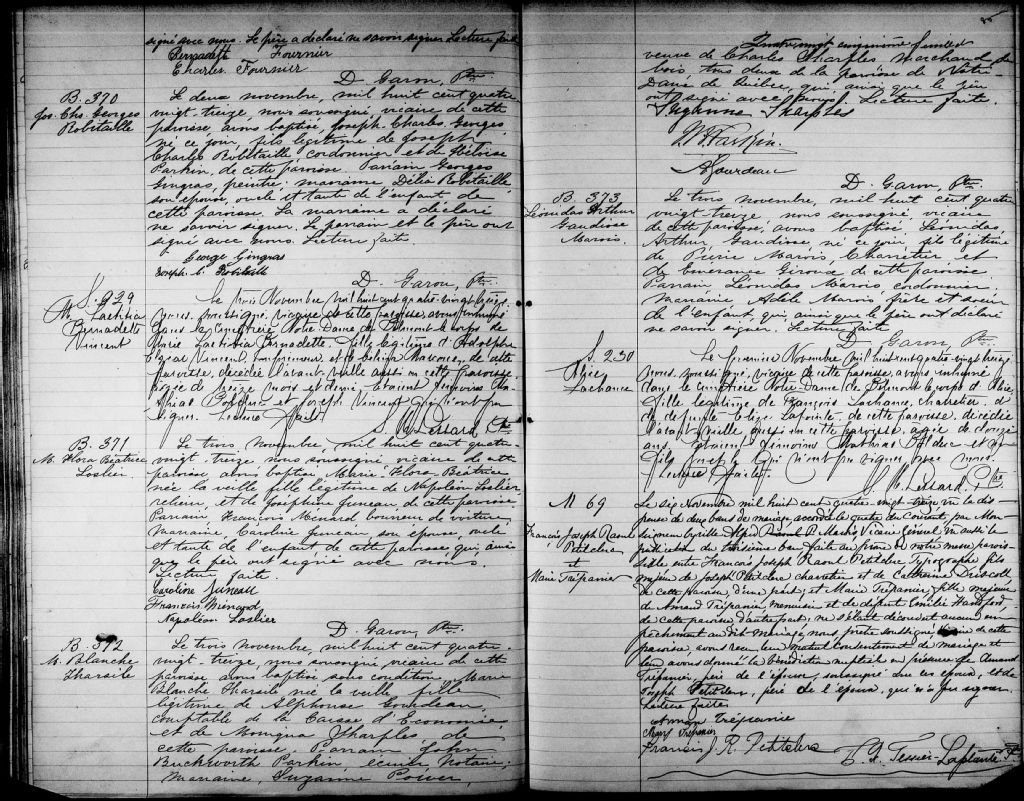 signé avec nous. Le père a déclaré ne savoir signer Lecture faite
Bernadett Fournier
Charles Fournier
D. Garon, Ptre
B. 370
Jos. Chs. Georges
Robitaille
Le deux novembre, mil huit cent quatre-
vingt-treize, nous soussigné, vicaire de cette
paroisse avons baptisé, Joseph-Charles-Georges
né ce jour, fils légitime de Joseph
Charles Robitaille cordonnier et de Héloïse
Parkin, de cette paroisse. Parrain Georges
Gingras, peintre; marraine Délia Robitaille
son épouse, oncle et tante de l'enfant de
cette paroisse. La marraine a déclaré
ne savoir signer. Le parrain et le père ont
signé avec nous. Lecture faite
George Gingras
Joseph C. Robitaille
D. Garon, Ptre
S. 229
M. Laetitia
Bernadette
Vincent
Le trois Novembre mil huit cent quatre-vingt treize
nous, soussigné, vicaire de cette paroisse, avons inhumé
dans le cimetière Notre Dame de Belmont le corps de
Marie Laetitia Bernadette, fille légitime d'Adolphe
Elzéar Vincent, et de
paroisse, décédée l'avant-veille aussi en cette paroisse
âgée de treize mois et demi. Etaient témoins
et Joseph Vincent qui n'ont pu
signer. Lecture faite.
Lessard Ptre
B. 371
M. Flora Béatrice
Loslier
Le trois novembre, mil huit cent quatre-
vingt-treize, nous soussigné vicaire de cette
paroisse avons baptisé Marie-Flora-Béatrice
née la veille fille légitime de Napoléon Loslier,
relieur et de Joséphine Juneau, de cette paroisse
Parrain François Ménard, bourreur de voitures,
marraine, Caroline Juneau son épouse, oncle
et tante de l'enfant de cette paroisse qui ainsi
que le père ont signé avec nous.
Lecture faite.
Caroline Juneau
François Menard
Napoléon Loslier
D. Garon, Ptre
B. 372
M. Blanche
Tharsile
Le trois novembre, mil huit cent quatre-
vingt-treize, nous soussigné, vicaire de cette
paroisse avons baptisé sous condition, Marie
Blanche Tharsile née la veille fille
légitime de Alphonse Gourdeau,
comptable de la Caisse d'Economie
et de Monique Sharples de
cette paroisse. Parrain John
Buckworth Parkin, écuier, Notaire;
Marraine, Suzanne Power,
veuve de Charles Sharples, marchand de
bois, tous deux de la paroisse de Notre-
Dame de Québec, qui, ainsi que le père
ont signé avec nous. Lecture faite.
Sharples
J B Parkin
A Gourdeau
D. Garon, Ptre
B. 373
Léonidas Arthur
Gaudiose
Marois
Le trois novembre, mil huit cent quatre-
vingt-treize, nous soussigné, vicaire
de cette paroisse, avons baptisé Léonidas,
Arthur, Gaudiose, né ce jour, fils légitime
de Pierre Marois, Charretier et
de Emerance Giroux de cette paroisse
Parrain, Léonidas Marois cordonnier,
marraine, Adèle Marois frère et soeur
de l'enfant, qui, ainsi que le père ont déclaré
ne savoir signer. Lecture faite
D. Garon, Ptre
S. 230
Alice
Lachance
Le premier Novembre mil huit cent quatre-vingt treize
nous, soussigné, vicaire de cette paroisse, avons inhumé
dans le cimetière Notre Dame de Belmont le corps d'Alice,
fille légitime de François Lachance, charretier, et
de défunte Eliza Lapointe, de cette paroisse, décédée
l'avant veille aussi en cette paroisse, âgée de douze
ans. Etaient témoins
fils qui n'ont pu signer avec nous.
Lecture faite.
Lessard, Ptre
M 69
François Joseph Raoul
Petitclerc
et
Marie Trépanier
Le sept Novembre mil huit cent quatre-vingt-treize vu la dis-
pense de deux bans de mariage accordée le quatre du courant, par Mon-
seigneur Cyrille Alfred Marois Vicaire Général vu aussi la
publication du troisième ban faite au prône de notre messe parois-
siale entre François Joseph Raoul Petitclerc Typographe fils
majeur de Joseph Petitclerc charretier et de Catherine Driscoll
de cette paroisse, d'une part, et Marie Trépanier, fille majeure
de Amand Trépanier, menuisier et de défunte Emilie
de cette paroisse d'autre part; ne s'étant découvert aucun em-
pêchement au dit mariage, nous prêtre soussigné, Vicaire de cette
paroisse avons reçu leur mutuel consentement de mariage et
leur avons donné la bénédiction nuptiale en présence de Amand
Trépanier, père de l'épouse, soussigné avec les époux, et de
Joseph Petitclerc, père de l'époux, qui n'a pu signer.
Lecture faite
Aman Trépanie
Trépanier
Francois J. R. Petitclerc
Tessier-Laplante Ptre